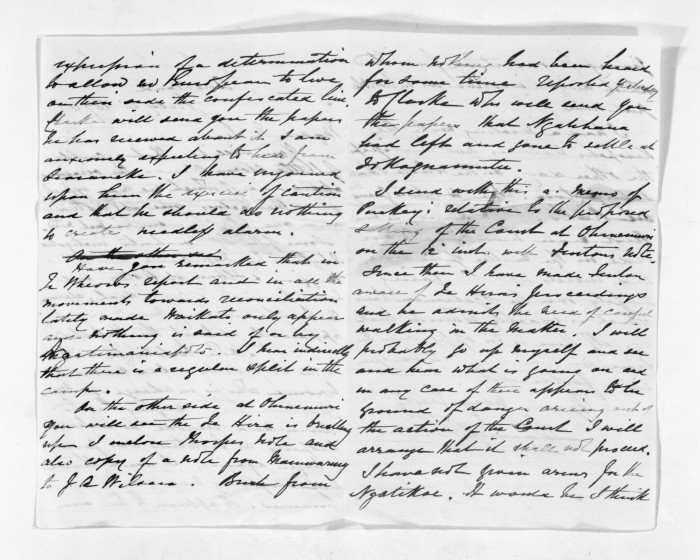 expression of a determination
to allow no European to live
on their side the confiscated line
will send you the papers
he has received about it I am
anxiously expecting to hear from
I have enjoined
upon him the exercise of Caution
and that he should do nothing
to create needless alarm.
On the other side
Have you remarked that in
Te Wheoro's report and in all the
movements towards reconciliation
lately made Waikato only appear
and nothing is said of or by
I hear indirectly
that there is a regular split in the
camp.
On the other side at Ohinemuri
you will see the Te Hira is
up I enclose note and
also copy of a note from
to J A Wilson. from
whom nothing had been heard
for some time reported yesterday
to Clarke who will send you
the papers that Ngatihaua
had left and gone to settle at

I send with this a memo of
Puckey's relative to the proposed
sitting of the Court at Ohinemuri
on the 12 inst. with note.
Since then I have made
aware of Te Hira's proceedings
and he admits the need of careful
walking in the matter. I will
probably go up myself and see
and hear what is going on and
in any case if there appears to be
ground of danger arising out of
the action of the Court I will
arrange that it shall not proceed.
I have not given arms for the
It would be I think